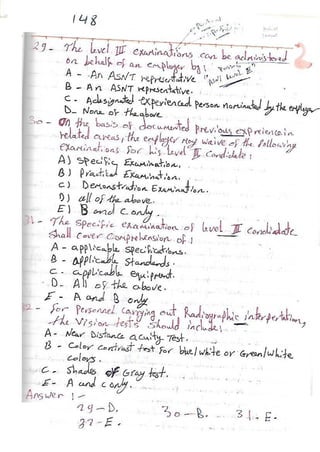 148
29- The level III examinations can be administered
on behalf of an employer by:
A - An ASNT representative
B - An ASNT representative.
C - A designated experienced person nominated by the employer
D- None of the above
30- On the basis of documented previous experience in
related areas, the employer may waive of the following
examinations for his level II Candidate:
A) Specific Examination.
B) Practical Examination.
C) Demonstration Examination.
D) all of the above.
E) B and C only.
31- The specific examination of level II candidate
shall cover comprehension of:
A - applicable specifications.
B - applicable Standards.
C - applicable equipment.
D- All of the above.
E - A and B only
32- for Personnel carrying out Radiographic interpretation,
the Vision tests should include:
A- Near Distance acuity Test.
B - Color contrast test for blue/white or Green/white
colors.
C- Shades of Gray test.
E- A and C only.
Answer :-
29-D. 30-B. 31-E.
32-E.